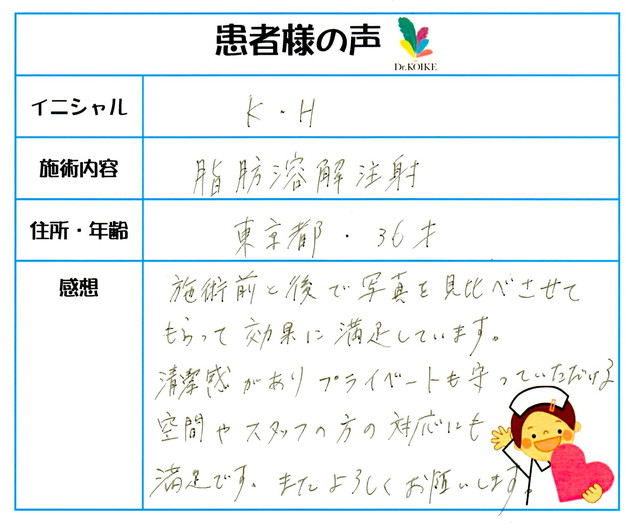 患者様の声
Dr.KOIKE
イニシャル K・H
施術内容 脂肪溶解注射
住所・年齢 東京都・36才
感想 施術前と後で写真を見比べさせて
もらって効果に満足しています。
清潔感がありプライベートも守っていただける
空間やスタッフの方の対応にも
満足です。またよろしくお願いします。